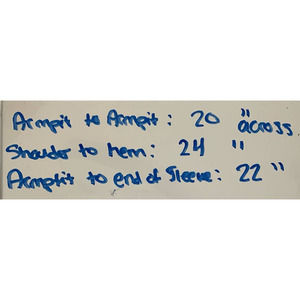 Armpit to Armpit: 20 " across
Shoulder to hem: 24 "
Armptit to end of Sleeve: 22 "